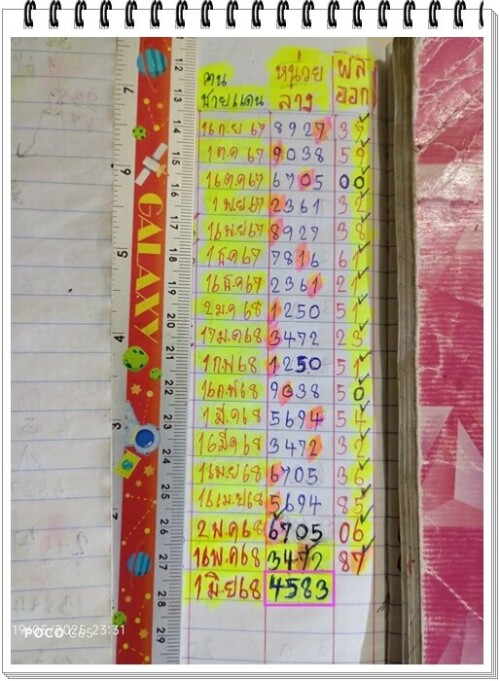 คน ชายแดน หน่วย ล่าง ผล ออก
16 ก.ย 67 8927 39
1 ต.ค 67 9038 59
16 ต.ค 67 6705 00
1 พ.ย 67 2361 32
16 พ.ย 67 8927 38
1 ธ.ค 67 7816 61
16 ธ.ค 67 2361 21
2 ม.ค 68 1250 51
17 ม.ค 68 3472 23
1 ก.พ 68 1250 51
16 ก.พ 68 9038 50
1 มี.ค 68 5694 54
16 มี.ค 68 3472 32
1 เม.ย 68 6705 36
16 เม.ย 68 5694 85
2 พ.ค 68 6705 06
16 พ.ค 68 3472 87
1 มิ.ย 68 4583
GALAXY
19/05/2025 23:31
POCO C65